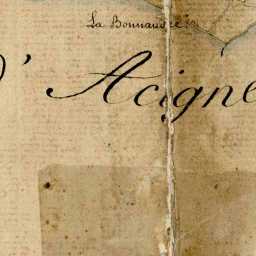 La Bonnaudie
D' Acigné